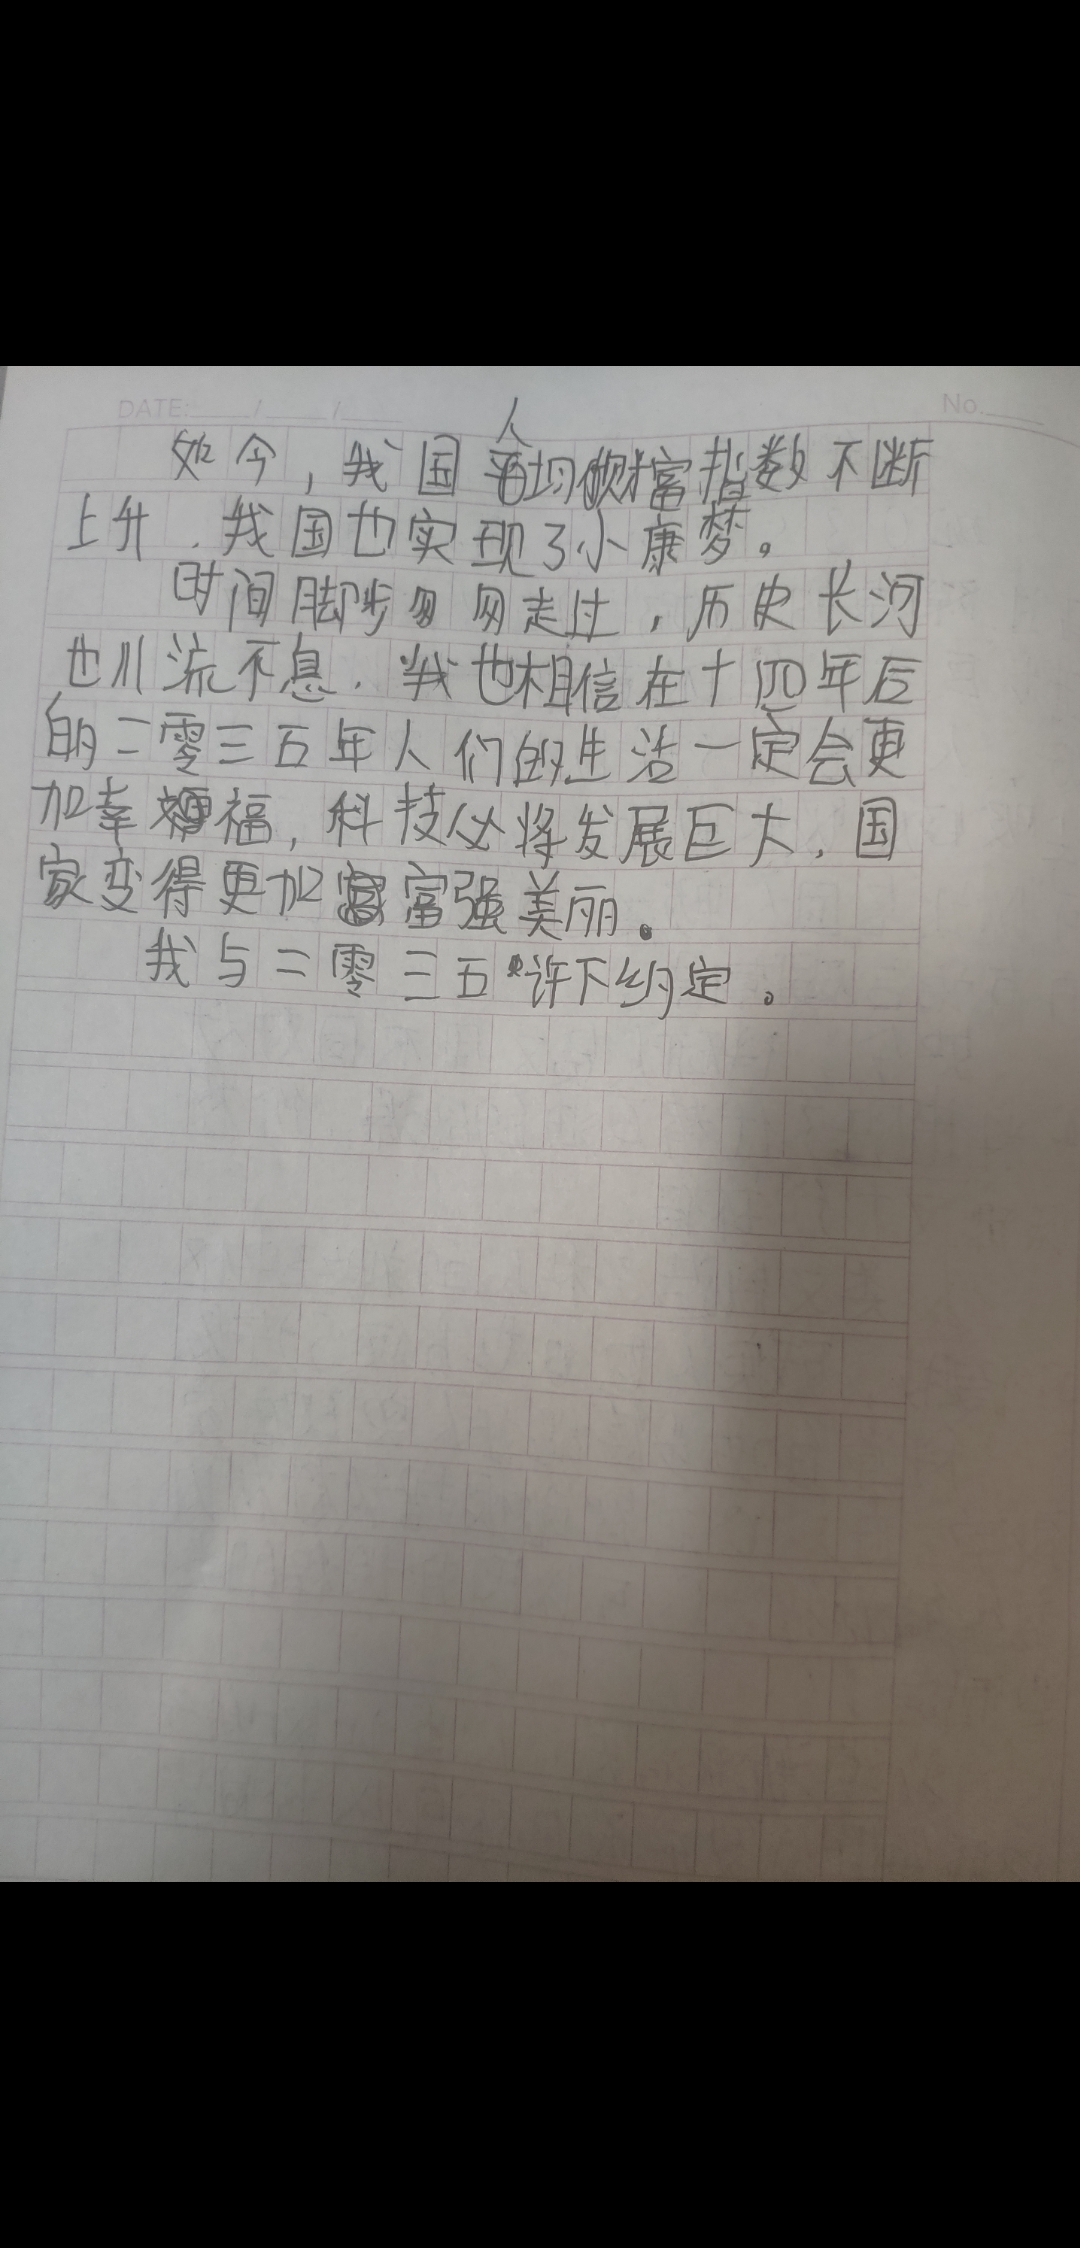 DATE: / / No.
如今，我国人均财富指数不断
上升．我国也实现了小康梦。
时间脚步匆匆走过，历史长河
也川流不息．我也相信在十四年后
的二零三五年人们的生活一定会更
加幸福，科技必将发展巨大，国
家变得更加富强美丽。
我与二零三五许下约定。